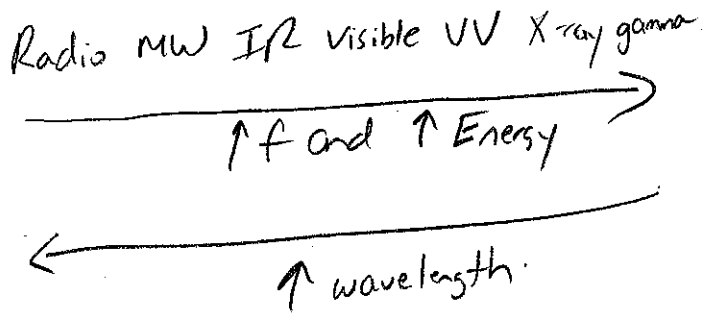 Radio MW IR Visible UV X-ray gamma.
↑ f and ↑ Energy
↑ wavelength.